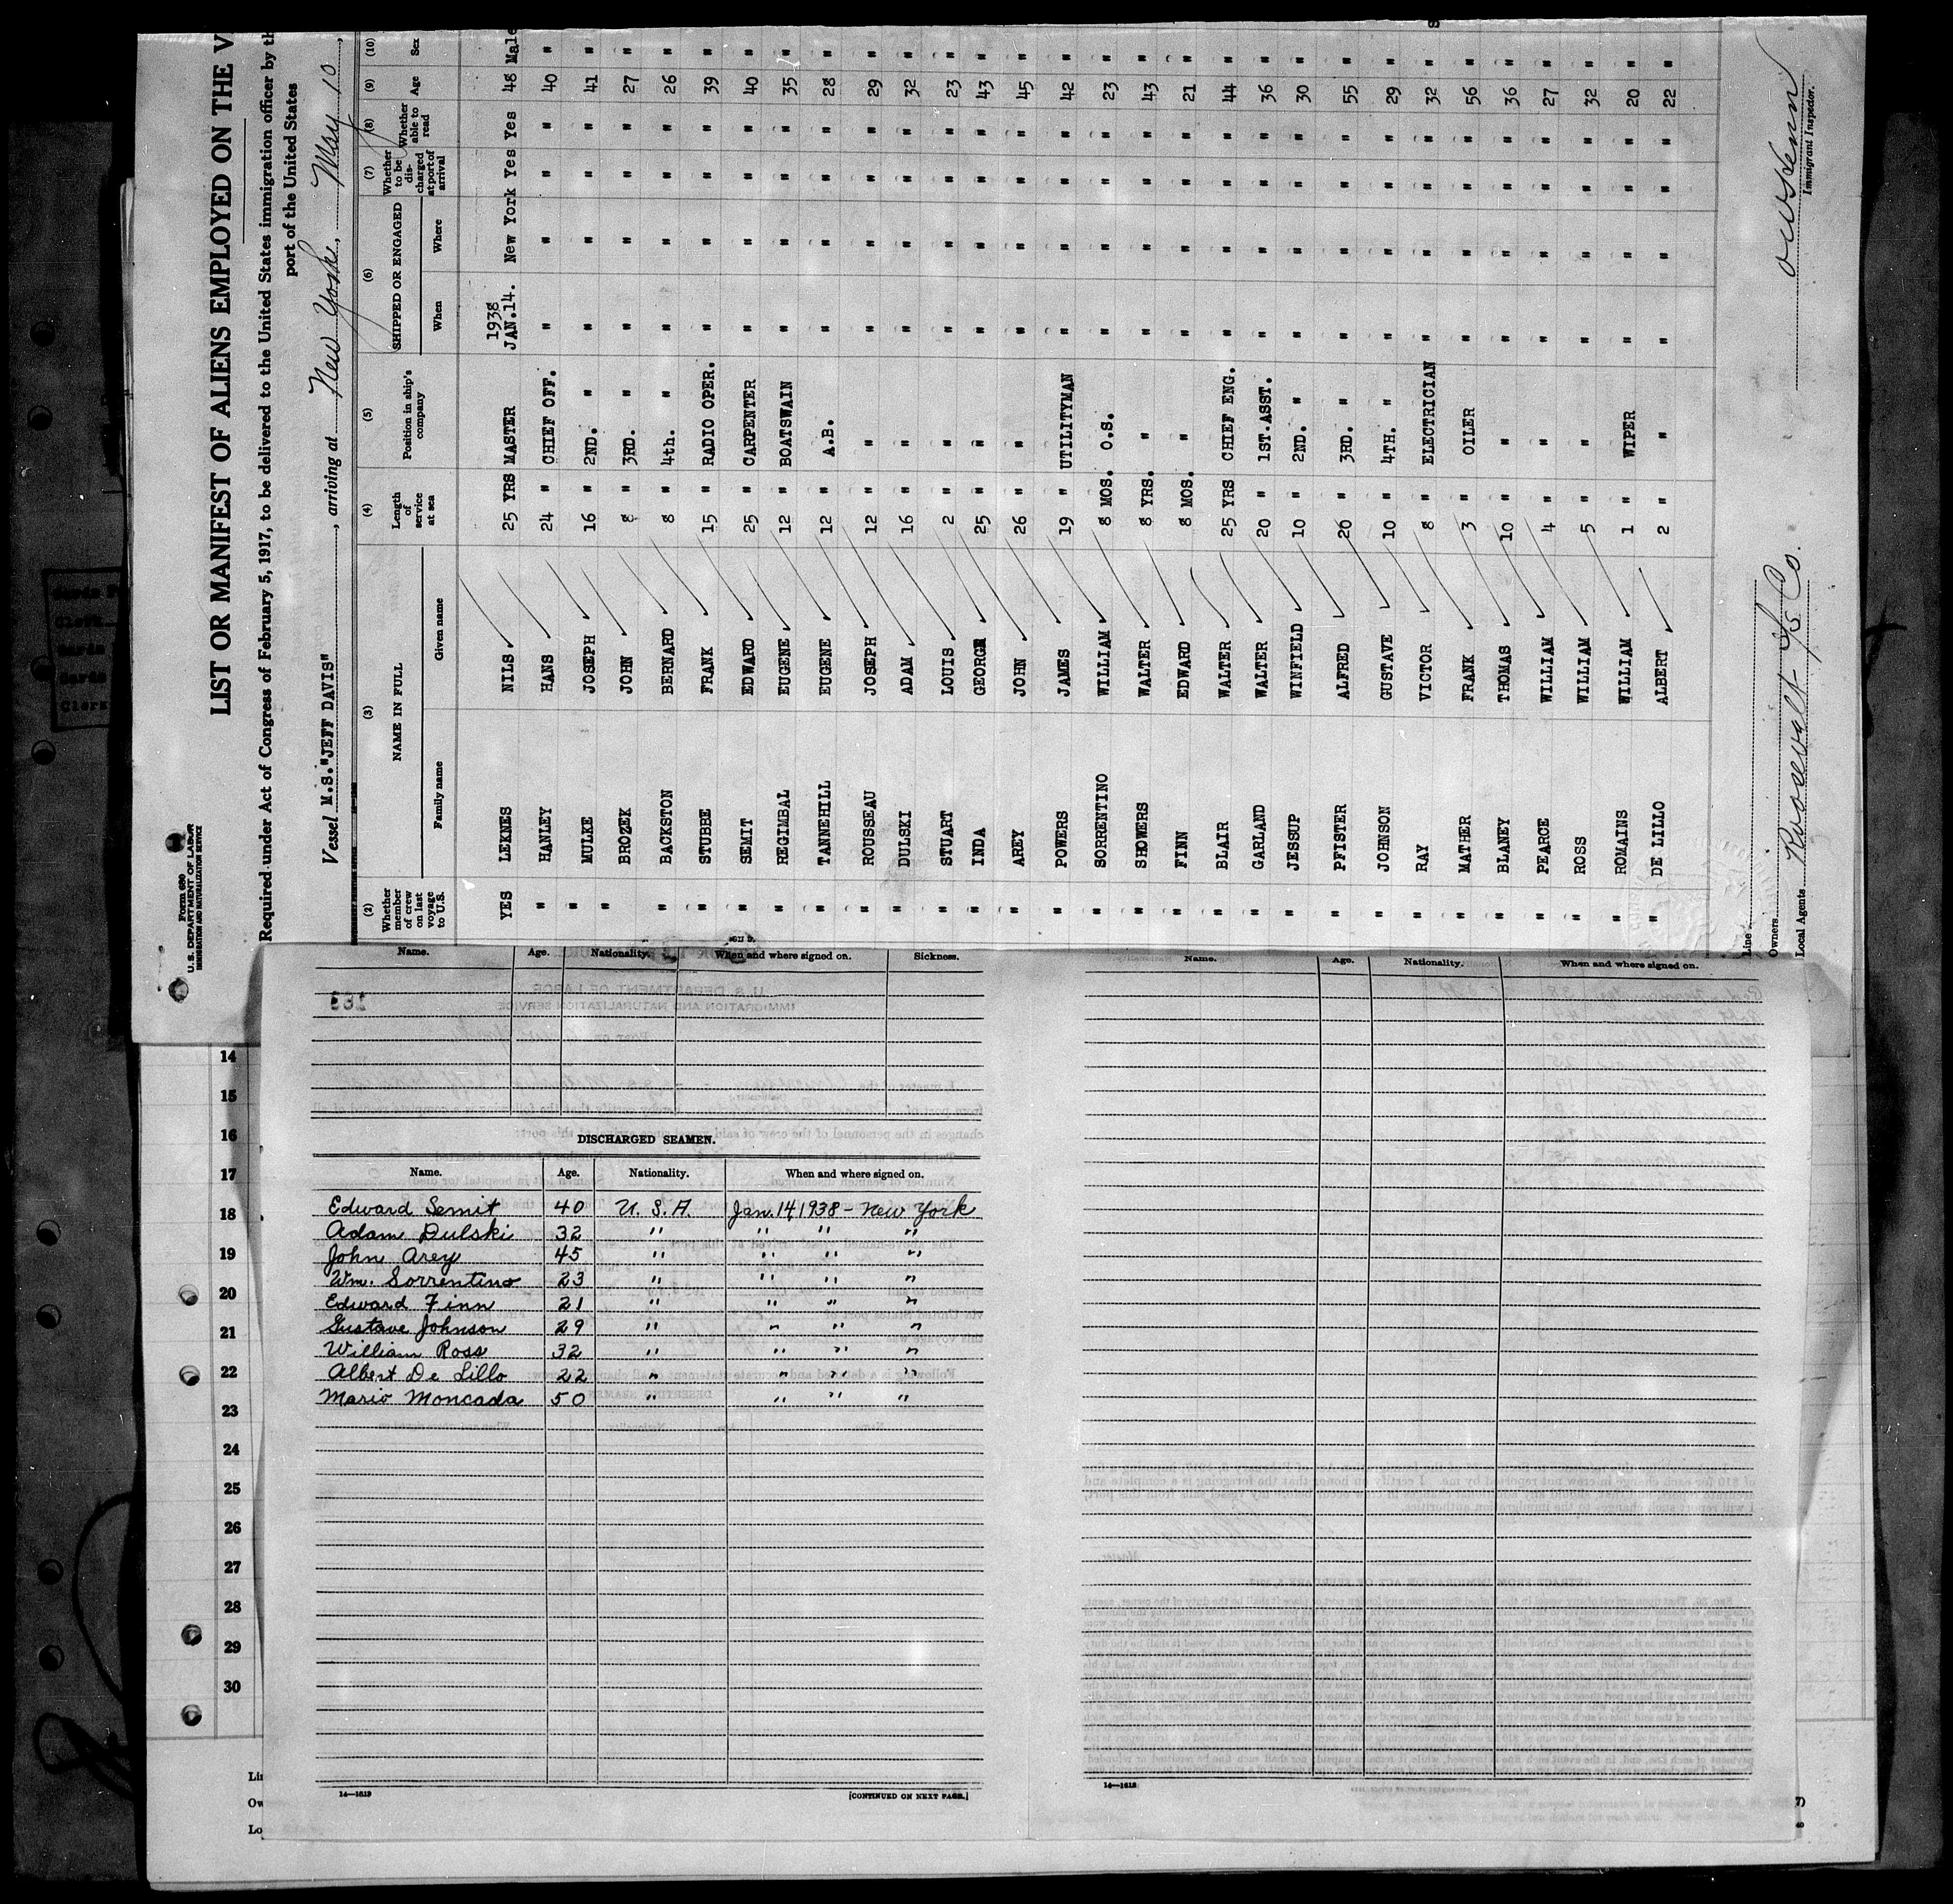 Form 680
U.S. DEPARTMENT OF LABOR
IMMIGRATION AND NATURALIZATION SERVICE
LIST OR MANIFEST OF ALIENS EMPLOYED ON THE V
Required under Act of Congress of February 5, 1917, to be delivered to the United States immigration officer by th
port of the United States
Vessel M.S."JEFF DAVIS", arriving at New York, May 10,
(2) (3) (4) (5) (6) (7) (8) (9) (10)
Whether member of crew on last voyage to U.S. NAME IN FULL Family name Given name Length of service at sea Position in ship's company SHIPPED OR ENGAGED When Where Whether to be discharged at port of arrival Whether able to read Age Sex
1938
YES LEKNES NILS 25 YRS MASTER JAN.14. New York Yes Yes 48 Male
" HANLEY HANS 24 " CHIEF OFF. " " " " 40 "
" MULKE JOSEPH 16 " 2ND. " " " " " 41 "
" BROZEK JOHN 8 " 3RD. " " " " " 27 "
" BACKSTON BERNARD 8 " 4th. " " " " " 26 "
" STUBBE FRANK 15 " RADIO OPER. " " " " 39 "
" SEMIT EDWARD 25 " CARPENTER " " " " 40 "
" REGIMBAL EUGENE 12 " BOATSWAIN " " " " 35 "
" TANNEHILL EUGENE 12 " A.B. " " " " 28 "
" ROUSSEAU JOSEPH 12 " " " " " " 29 "
" DULSKI ADAM 16 " " " " " " 32 "
" STUART LOUIS 2 " " " " " " 23 "
" INDA GEORGE 25 " " " " " " 43 "
" AREY JOHN 26 " " " " " " 45 "
" POWERS JAMES 19 " UTILITYMAN " " " " 42 "
" SORRENTINO WILLIAM 8 MOS. O.S. " " " " 23 "
" SHOWERS WALTER 8 YRS. " " " " " 43 "
" FINN EDWARD 8 MOS. " " " " " 21 "
" BLAIR WALTER 25 YRS CHIEF ENG. " " " " 44 "
" GARLAND WALTER 20 " 1ST.ASST. " " " " 36 "
" JESSUP WINFIELD 10 " 2ND. " " " " " 30 "
" PFISTER ALFRED 26 " 3RD. " " " " " 55 "
" JOHNSON GUSTAVE 10 " 4TH. " " " " " 29 "
" RAY VICTOR 8 " ELECTRICIAN " " " " 32 "
" MATHER FRANK 3 " OILER " " " " 56 "
" BLANEY THOMAS 10 " " " " " " 36 "
" PEARCE WILLIAM 4 " " " " " " 27 "
" ROSS WILLIAM 5 " " " " " " 32 "
" ROMAINS WILLIAM 1 " WIPER " " " " 20 "
" DE LILLO ALBERT 2 " " " " " " 22 "
Line
Owners
Local Agents Roosevelt SS Co.
Immigrant Inspector.
Name. Age. Nationality. When and where signed on. Sickness.
DISCHARGED SEAMEN.
Name. Age. Nationality. When and where signed on.
Edward Semit 40 U.S.A. Jan. 14 1938 - New York
Adam Dulski 32 " " " "
John Arey 45 " " " "
Wm. Sorrentino 23 " " " "
Edward Finn 21 " " " "
Gustave Johnson 29 " " " "
William Ross 32 " " " "
Albert De Lillo 22 " " " "
Mario Moncada 50 " " " "
14—1613
[CONTINUED ON NEXT PAGE.]
Name. Age. Nationality. When and where signed on.
14—1613
14
15
16
17
18
19
20
21
22
23
24
25
26
27
28
29
30
Lin
Ow
Lo